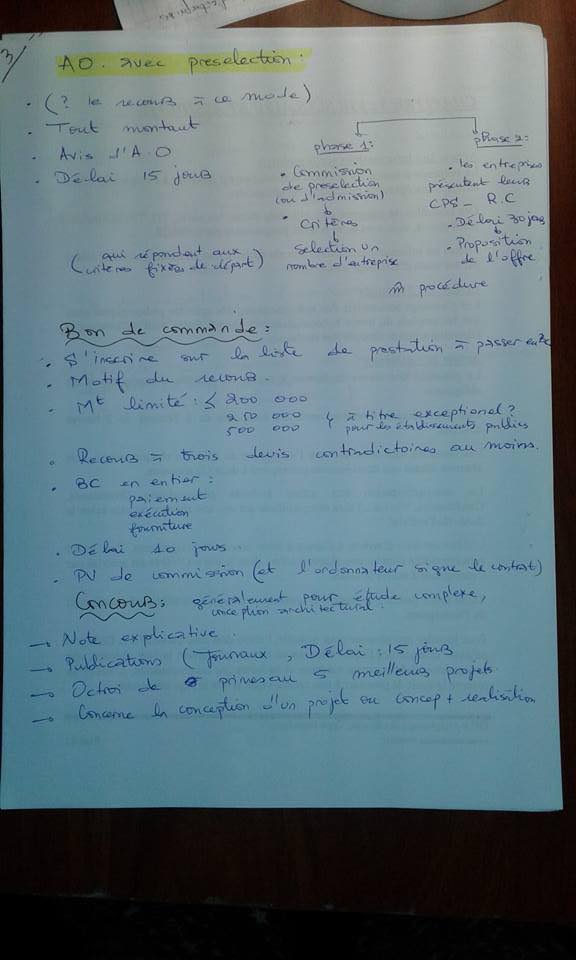 3/
AO. avec preselection:
. (? le recours à ce mode)
. Tout montant
. Avis d'A.O
. Délai 15 jours
(qui répondent aux
critères fixées de départ)
phase 1:
. Commission
de preselection
(ou d'admission)
. Critères
Sélection un
nombre d'entreprise
phase 2:
. les entreprises
présentent leurs
CPS - R.C
. Délai 30 jrs
. Proposition
de l'offre
m̂ procédure
Bon de commande:
. S'inscrire sur la liste de prestation à passer en BC
. Motif du recours.
. Mt limité: ≤ 200 000
250 000
500 000
à titre exceptionel?
pour les établissements publics
. Recours à trois devis contradictoires au moins.
. BC en entier:
paiement
exécution
fourniture
. Délai 10 jours
. PV de commission (et l'ordonnateur signe le contrat)
Concours: généralement pour étude complexe,
conception architectural.
→ Note explicative.
→ Publications (Journaux, Délai: 15 jours
→ Octroi de primes au 5 meilleurs projets.
→ Concerne la conception d'un projet ou concep + realisition